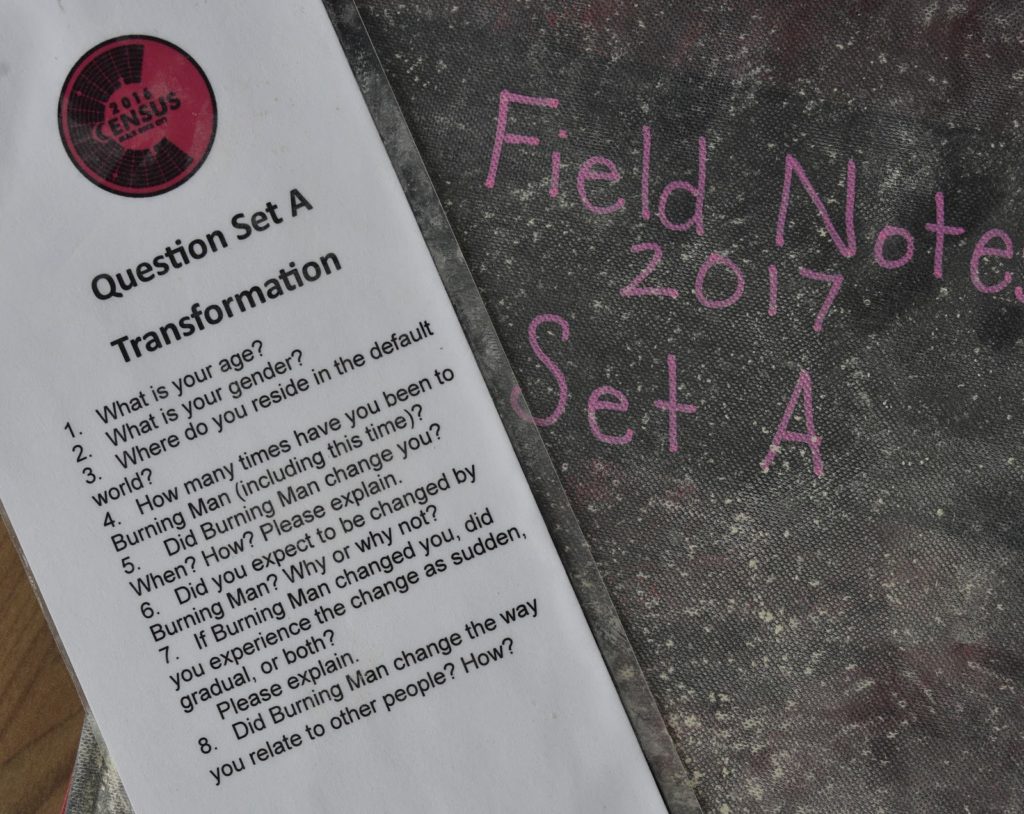 2016
CENSUS
BLACK ROCK CITY
Question Set A
Transformation
1. What is your age?
2. What is your gender?
3. Where do you reside in the default
world?
4. How many times have you been to
Burning Man (including this time)?
5. Did Burning Man change you?
When? How? Please explain.
6. Did you expect to be changed by
Burning Man? Why or why not?
7. If Burning Man changed you, did
you experience the change as sudden,
gradual, or both?
Please explain.
8. Did Burning Man change the way
you relate to other people? How?
Field Notes
2017
Set A